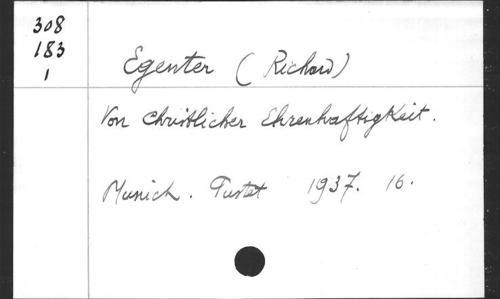 308
183
1
Egenter (Richard)
Von christlicher Ehrenhaftigkeit.
Munich. Pustet 1937. 16.